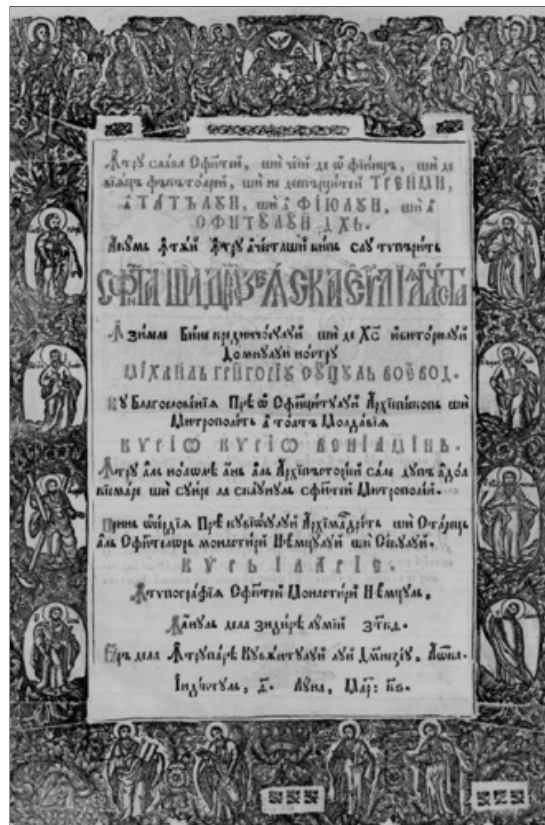 Ꙟтру слава Сфинтей, ши чѣй де ѡ фіинцъ, ши де
віацъ фъкътоарей, ши не деспърцитей ТРЕИМИ,
а ТАТЪЛУИ, ши а ФІЮЛУИ, ши а
СФНТУЛУЙ ДХЬ.
Акумь ꙟтѫй ꙟтру ачесташй кипь сау типъритъ
СФѪТА ШИ ДМНЗЕꙖСКА ЕѴГЛІЕ АЧАСТА
Ꙟ зилеле Бине крединчосулуй ши де Хс юбиторюлуй
Домнулуй ностру
МІХАИЛЬ ГРИГОРІУ СУЦУЛЬ ВОЕВОД.
Ку Благословенія Прѣ ѡ Сфинцитулуй Архіепіскопь ши
Митрополить а тоатъ Молдавія
КУРІѠ КУРІѠ ВЕНІАМІНЬ.
Ꙟтру аль ноаоле ань аль Архіпъсторіей сале дупъ а доа
кіемаре ши суире ла скаунуль сфинтей Митрополій.
Принь ѡсърдія Прѣ кувіосулуй Архимандрить ши Старець
аль Сфинтелорь монастирй Нѣмцулуй ши Сѣкулуй.
КУРЬ ІЛАРІЕ.
Ꙟ типографія Сфинтей Монастирй Нѣмцуль,
Ꙟ ануль дела зидирѣ лумій ҂зткѳ.
Ѧръ дела ꙟтрупарѣ Кувѫнтулуй луй Дмнезѣу, ҂аѡка.
Індіктуль, Луна, Мар: кв.